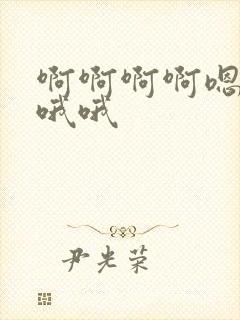 啊啊啊啊嗯
哦哦
尹光荣